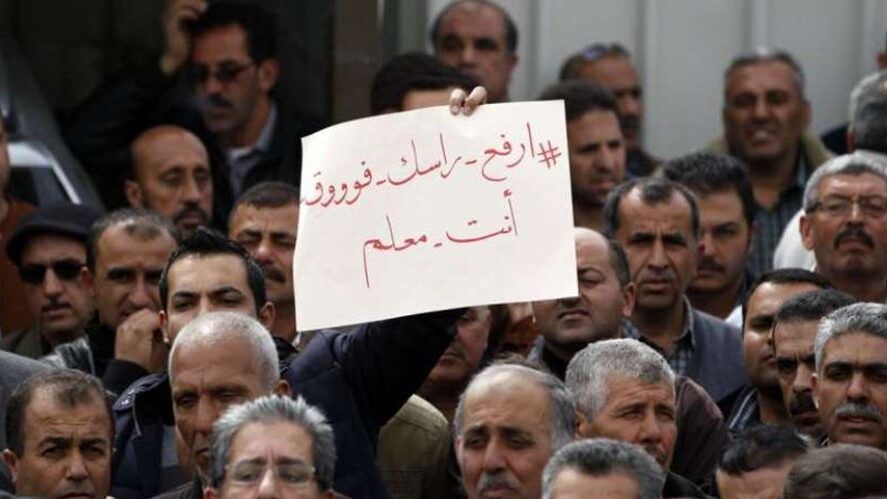 #ارفع_راسك_فوووق_
أنت_معلم